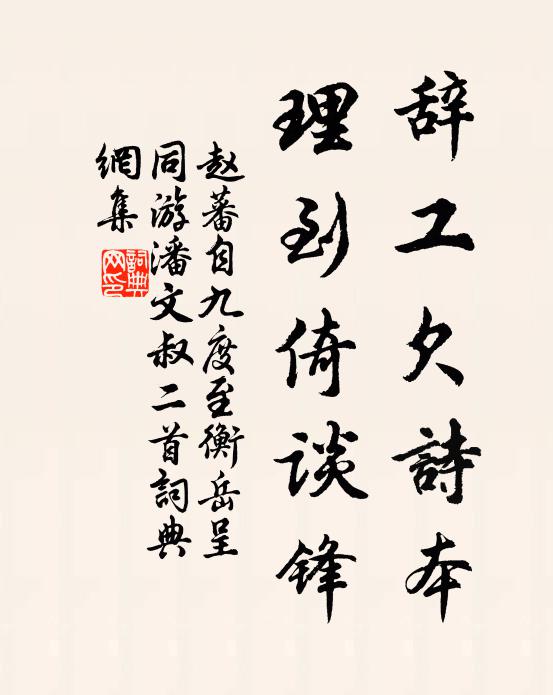 辞工欠詩本
理到倚谈锋
赵蕃自九度至衡岳呈
同游潘文叔二首詞典
網集
詞典
网印